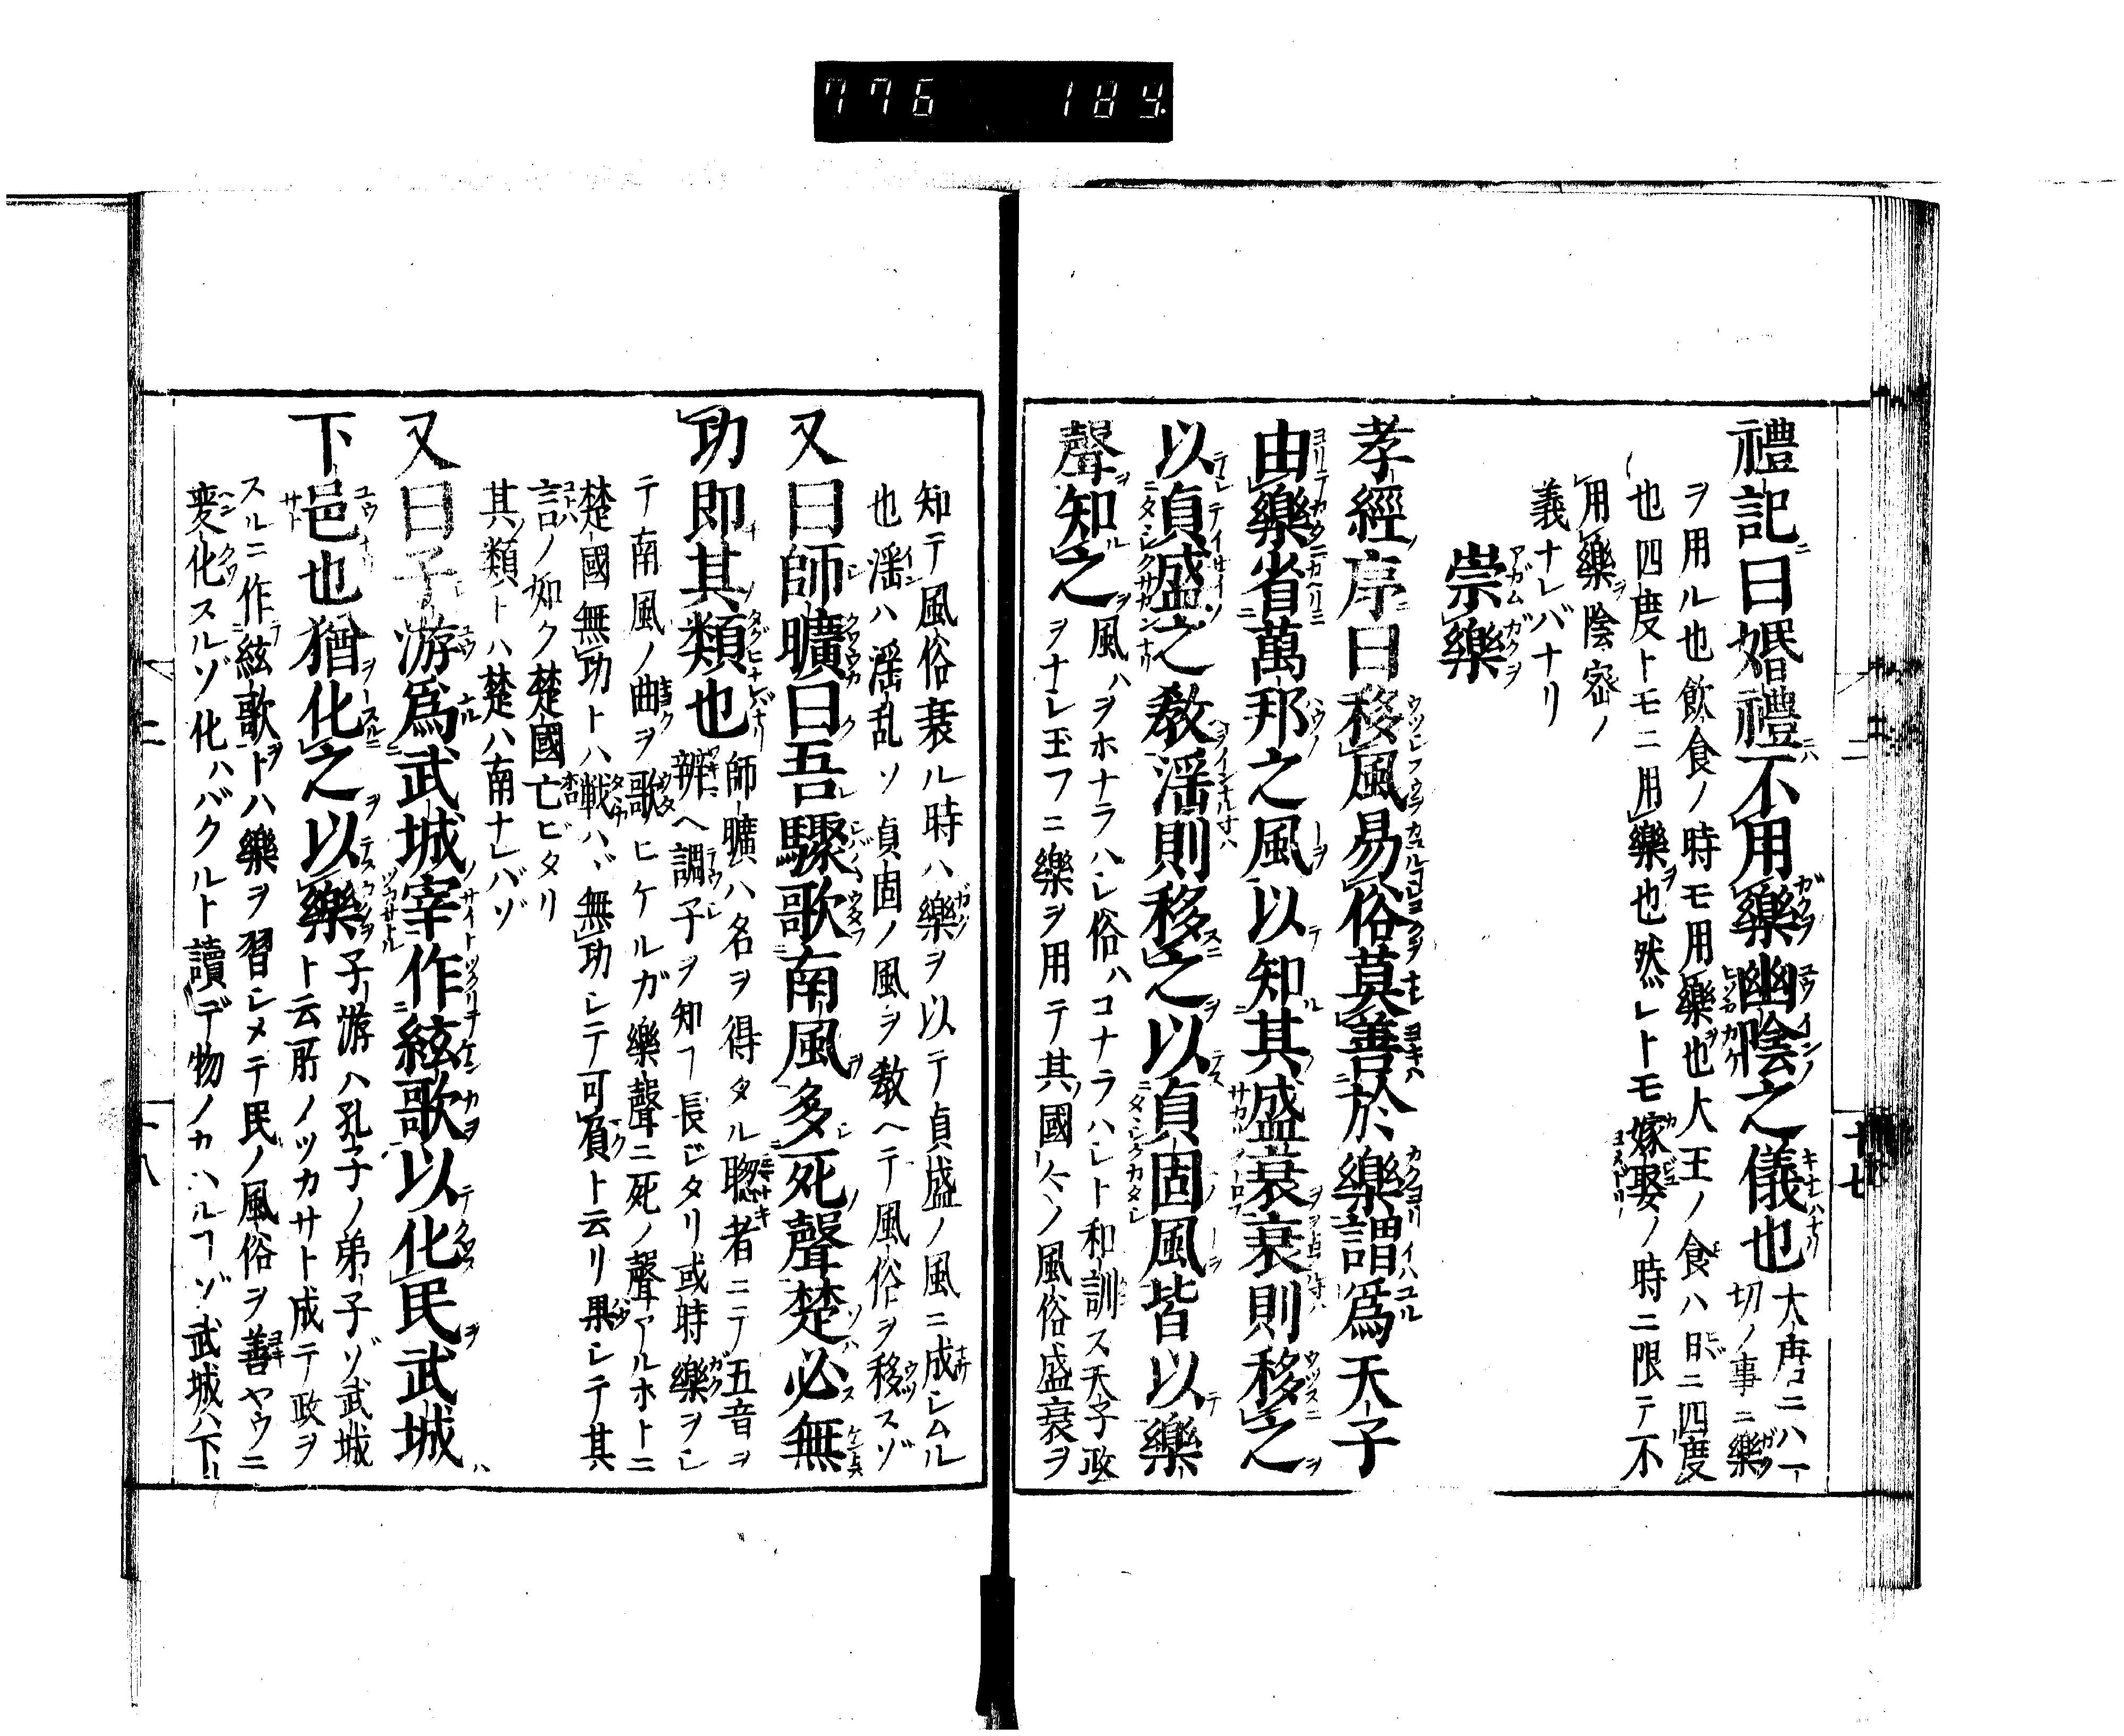 776 184
禮記曰婚禮不用樂幽陰之儀也大唐ニハ一
切ノ事ニ樂
ヲ用ル也飲食ノ時モ用樂也大王ノ食ハ日ニ四度
也四度トモニ用樂也然レトモ嫁娶ノ時ニ限テ不
用樂陰密ノ
義ナレバナリ
崇樂
孝經序曰移風易俗莫善於樂謂爲天子
由樂省萬邦之風以知其盛衰衰則移之
以貞盛之敎滛則移之以貞固風皆以樂
聲知之風ハヲホナラハシ俗ハコナラハシト和訓ス天子政
ヲナシ玉フニ樂ヲ用テ其國々ノ風俗盛衰ヲ
知テ風俗衰ル時ハ樂ヲ以テ貞盛ノ風ニ成シムル
也滛ハ滛乱ソ貞固ノ風ヲ敎ヘテ風俗ヲ移スゾ
又曰師曠曰吾驟歌南風多死聲楚必無
功即其類也師曠ハ名ヲ得タル聰者ニテ五音ヲ
辨ヘ調子ヲ知ヿ長ジタリ或時樂ヲシ
テ南風ノ曲ヲ歌ヒケルガ樂聲ニ死ノ聲アルホトニ
楚國無功トハ戦ハヾ無功シテ可負ト云リ果シテ其
言ノ如ク楚國亡ビタリ
其類トハ楚ハ南ナレバゾ
又曰子游爲武城宰作絃歌以化民武城
下邑也猶化之以樂子游ハ孔子ノ弟子ゾ武城
ト云所ノツカサト成テ政ヲ
スルニ作絃歌トハ樂ヲ習シメテ民ノ風俗ヲ善ヤウニ
変化スルゾ化ハバクルト讀デ物ノカハルヿゾ武城ハ下
十七